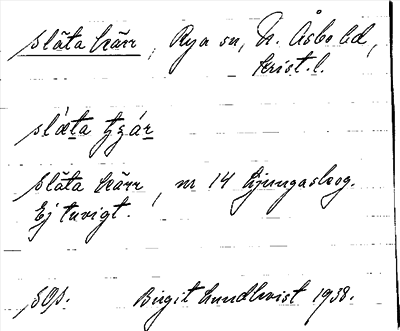 släta kärr, Rya sn, N. Åsbo hd,
Krist. l.
slǽta tʃǽr
släta kärr, nr 14 Ljungaskog.
Ej tuvigt.
SOP. Birgit Lundkvist 1938.